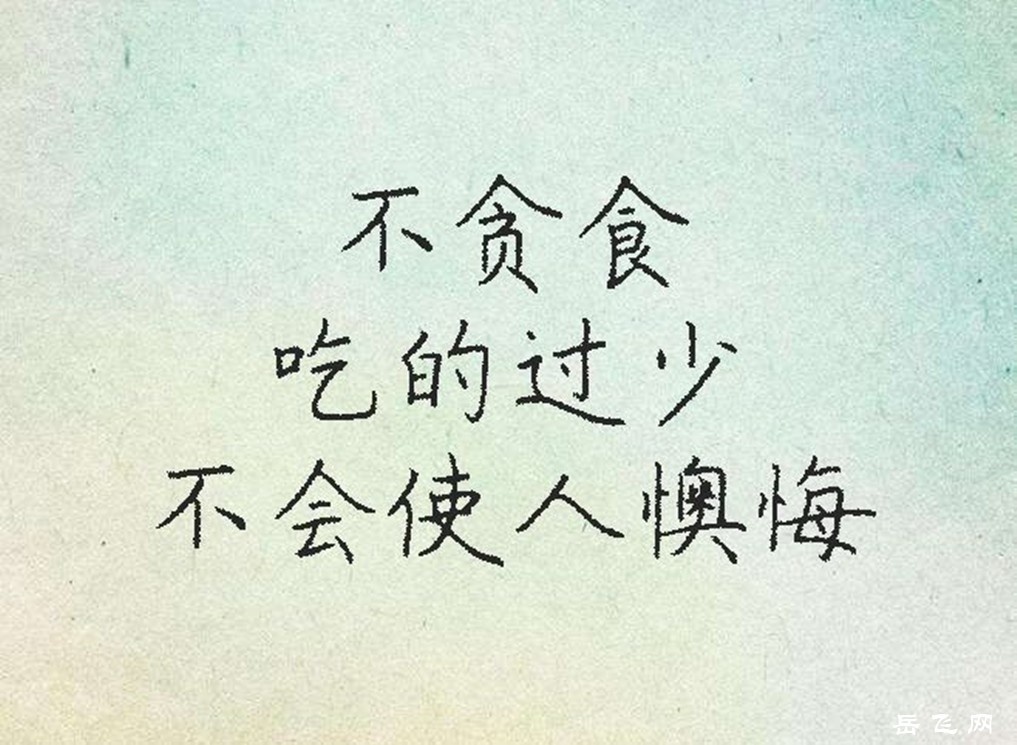 不贪食
吃的过少
不会使人懊悔
岳飞网